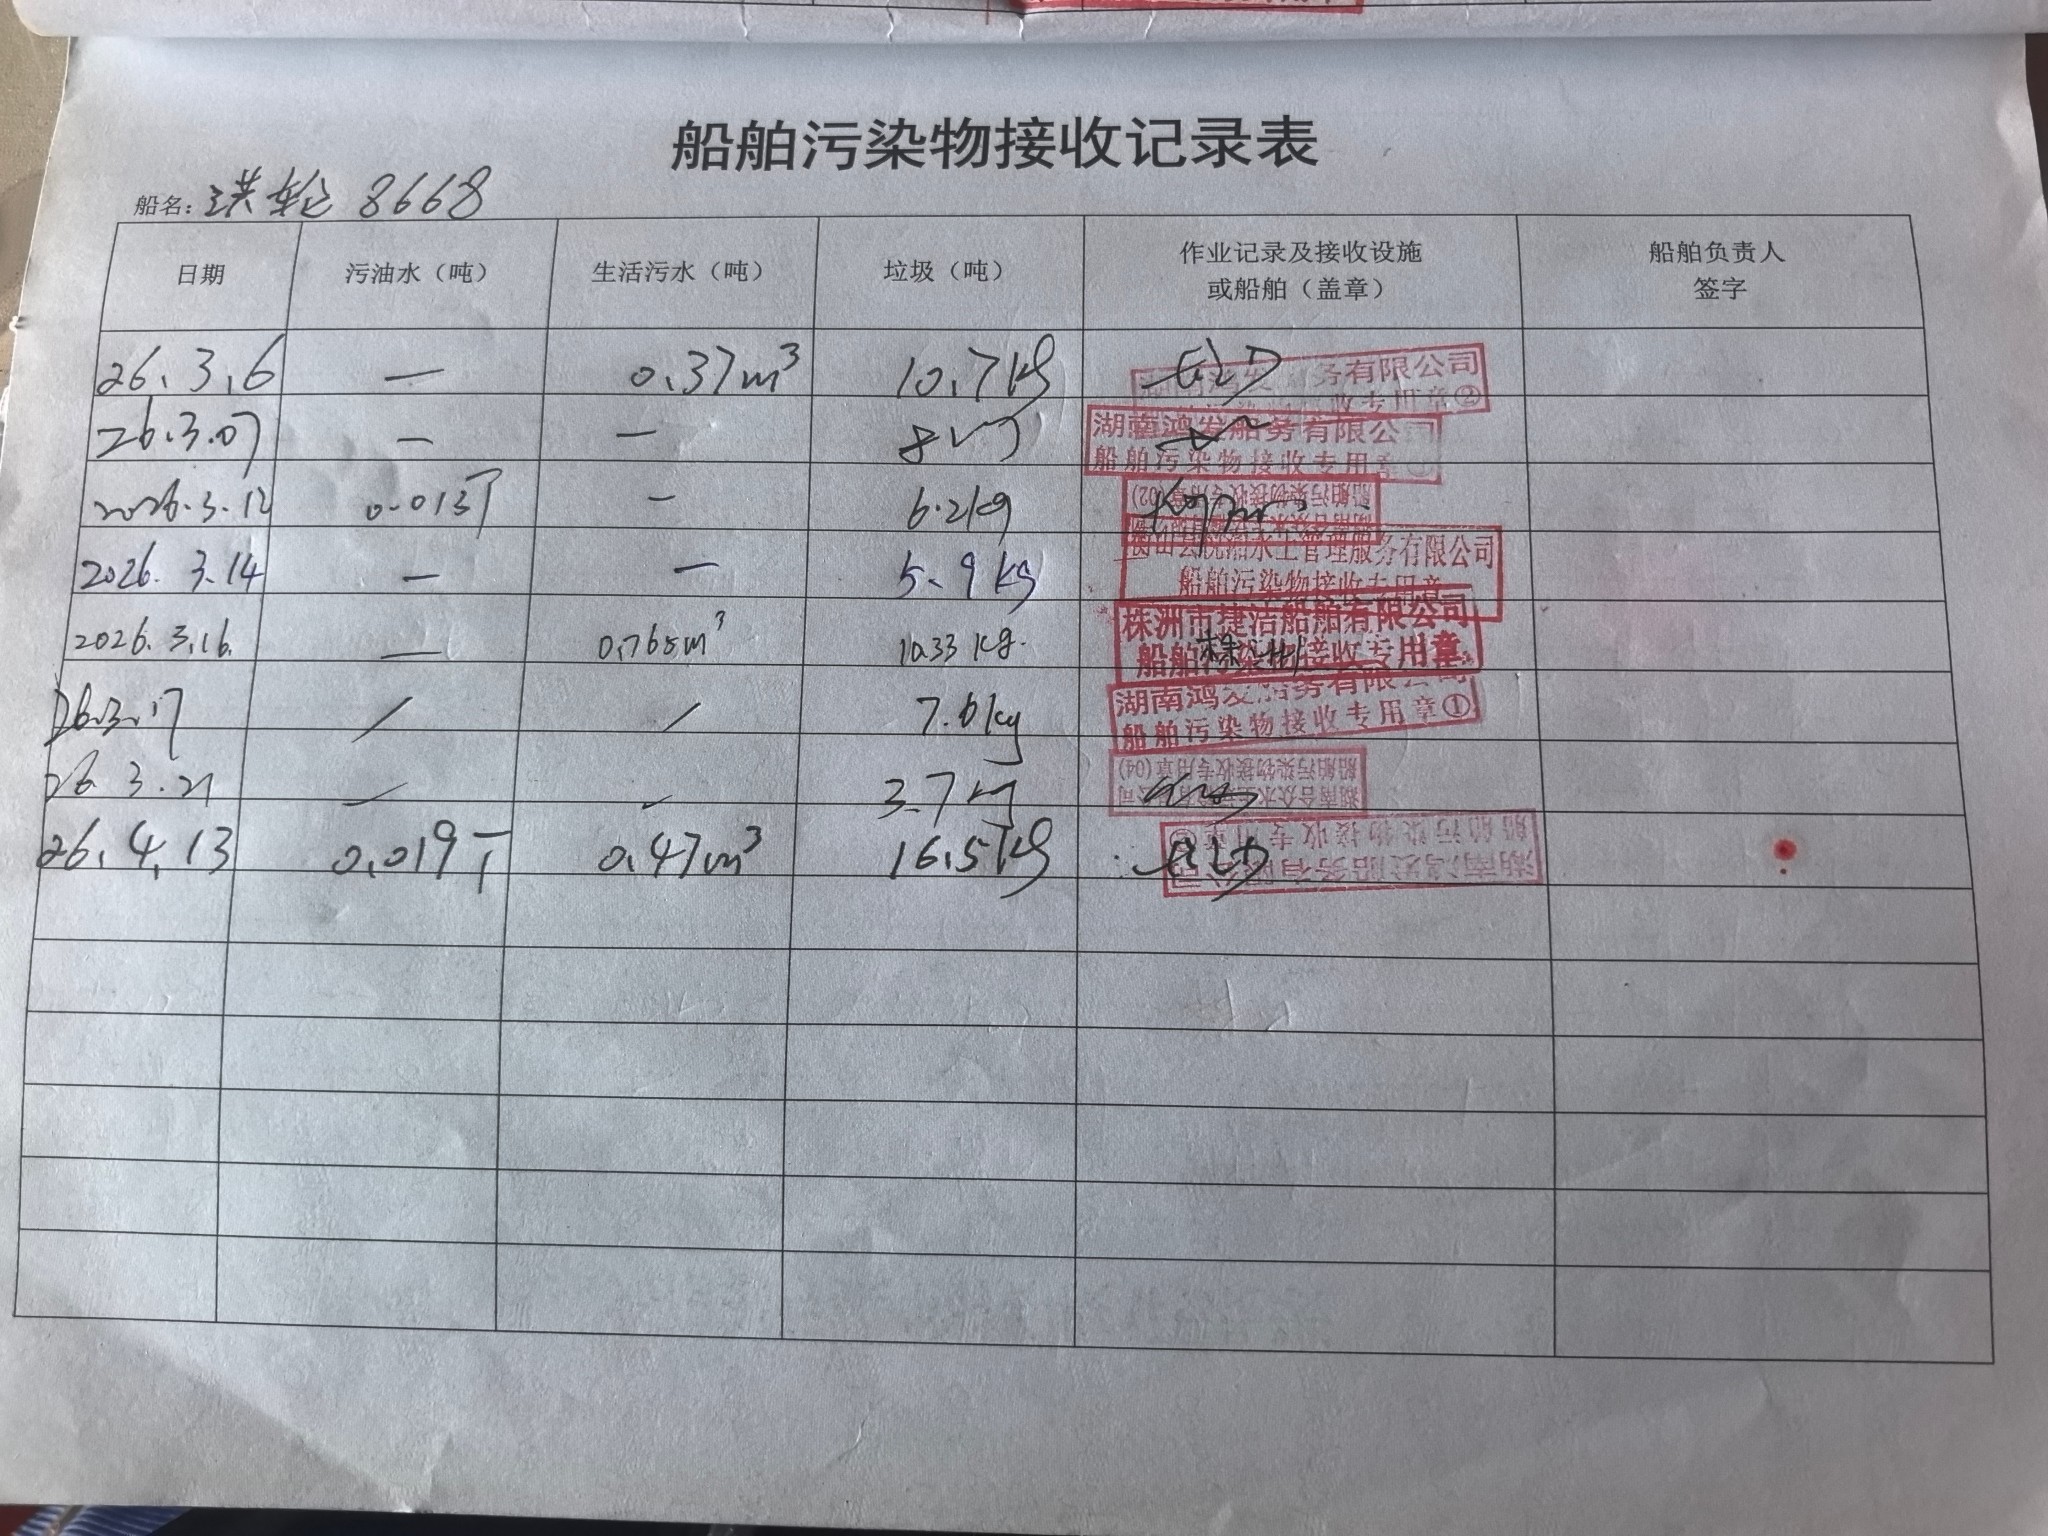 船舶污染物接收记录表
船名: 洪轮 8668
日期 污油水（吨） 生活污水（吨） 垃圾（吨） 作业记录及接收设施或船舶（盖章） 船舶负责人签字
26.3.6 — 0.37m³ 10.7kg 务有限公司 接收专用章②
26.3.07 — — 8 湖南鸿发船务有限公 船舶污染物接收专用章
2026.3.12 0.013T — 6.2kg 船舶污染物接收专用章(02)
2026.3.14 — — 5.9kg 水上管理服务有限公司 船舶污染物接收专用章
2026.3.16. — 0.765m³ 10.33kg. 株洲市捷洁船舶有限公司 船舶污染物接收专用章 株洲
26.3.17 / / 7.6kg 湖南鸿发船务有限公司 船舶污染物接收专用章①
26.3.21 — — 3.7kg 船舶污染物接收专用章(04) 湖南合众水上
26.4.13 0.019T 0.47m³ 16.5kg 湖南鸿发船务有限公司 船舶污染物接收专用章